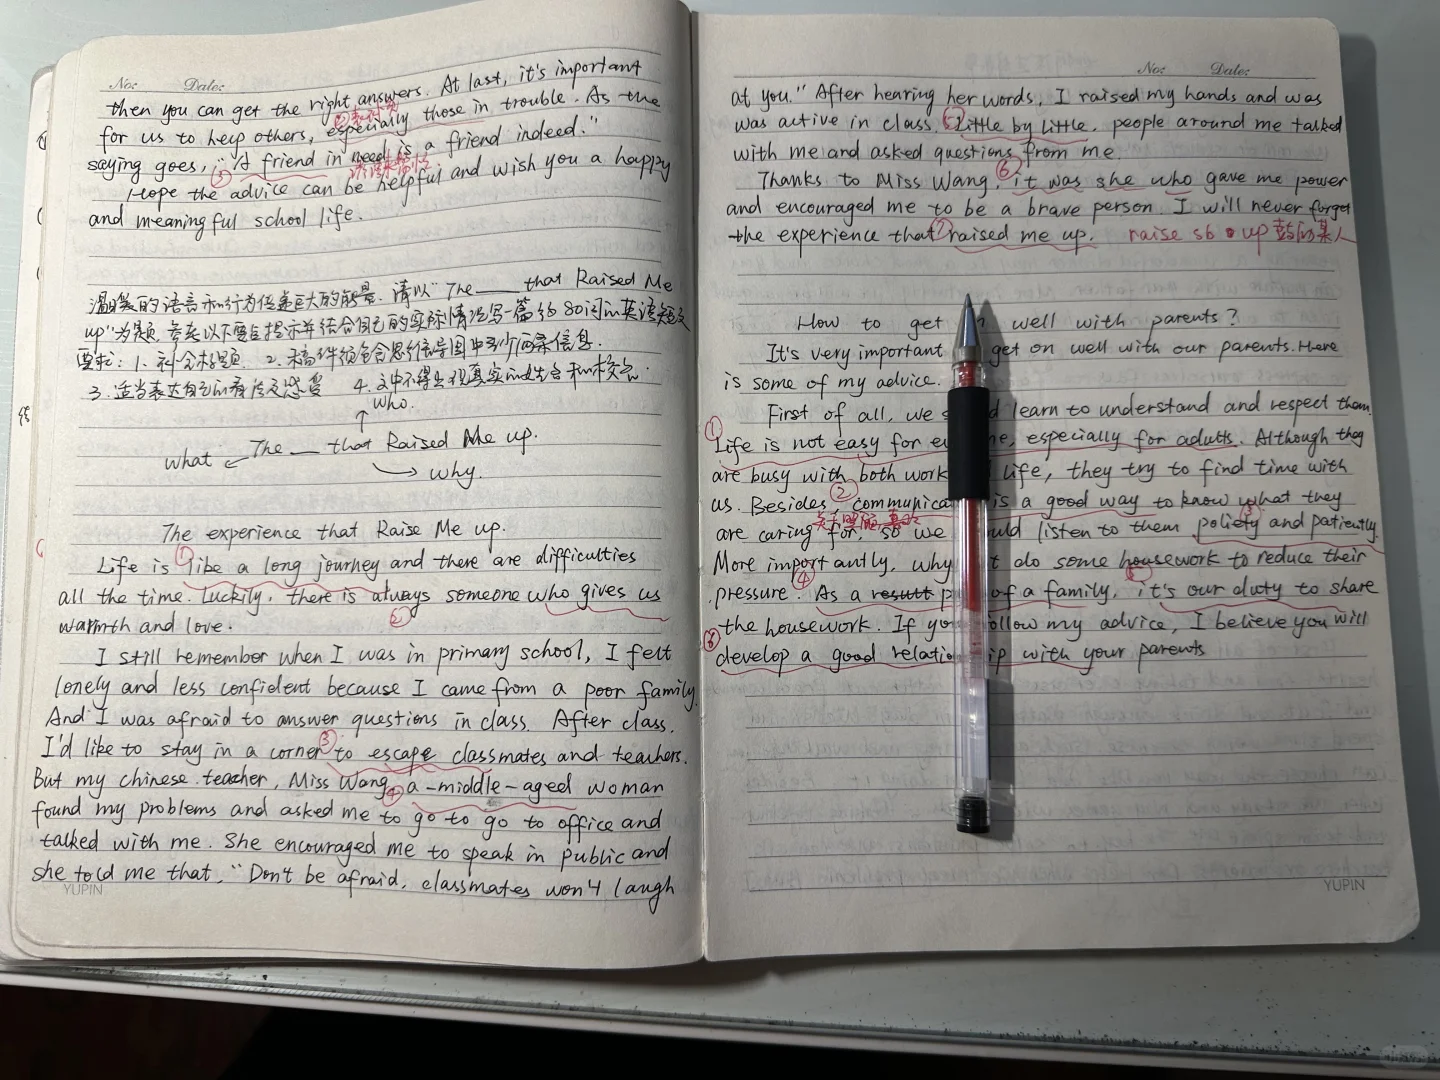 No: Date:
then you can get the right answers. At last, it's important
for us to help others, especially those in trouble. As the
saying goes, "A friend in need is a friend indeed."
Hope the advice can be helpful and wish you a happy
and meaningful school life.
温暖的语言和行为传递巨大的能量. 请以 "The ___ that Raised Me
up"为题, 参考以下要点提示并结合自己的实际情况写一篇约80词的英语短文
要求: 1. 补全标题 2. 稿件须包含思维导图中至少两条信息.
3. 适当表达自己的看法及感受 4. 文中不得出现真实的姓名和校名.
who.
The __ that Raised Me up.
what
why.
The experience that Raise Me up.
① Life is like a long journey and there are difficulties
all the time. Luckily, there is always someone who gives us
②
warmth and love.
I still remember when I was in primary school, I felt
lonely and less confident because I came from a poor family.
And I was afraid to answer questions in class. After class,
I'd like to stay in a corner ③ to escape classmates and teachers.
But my chinese teacher, Miss Wang, ④ a-middle-aged woman
found my problems and asked me to go to go to office and
talked with me. She encouraged me to speak in public and
she told me that, "Don't be afraid, classmates won't laugh
YUPIN
No: Date:
at you." After hearing her words, I raised my hands and was
was active in class. ⑤ Little by little, people around me talked
with me and asked questions from me.
Thanks to Miss Wang, ⑥ it was she who gave me power
and encouraged me to be a brave person. I will never forget
the experience that ⑦ raised me up. raise sb up 鼓励某人
How to get well with parents?
It's very important get on well with our parents. Here
is some of my advice.
First of all, we learn to understand and respect them.
① Life is not easy for , especially for adults. Although they
are busy with both work life, they try to find time with
us. Besides, ② is a good way to know what they
are caring for, so we listen to them ③ poliety and patiently.
More importantly, why do some housework to reduce their
pressure. ④ As a result of a family, ⑤ it's our duty to share
the housework. If follow my advice, I believe you will
⑥ develop a good with your parents
YUPIN